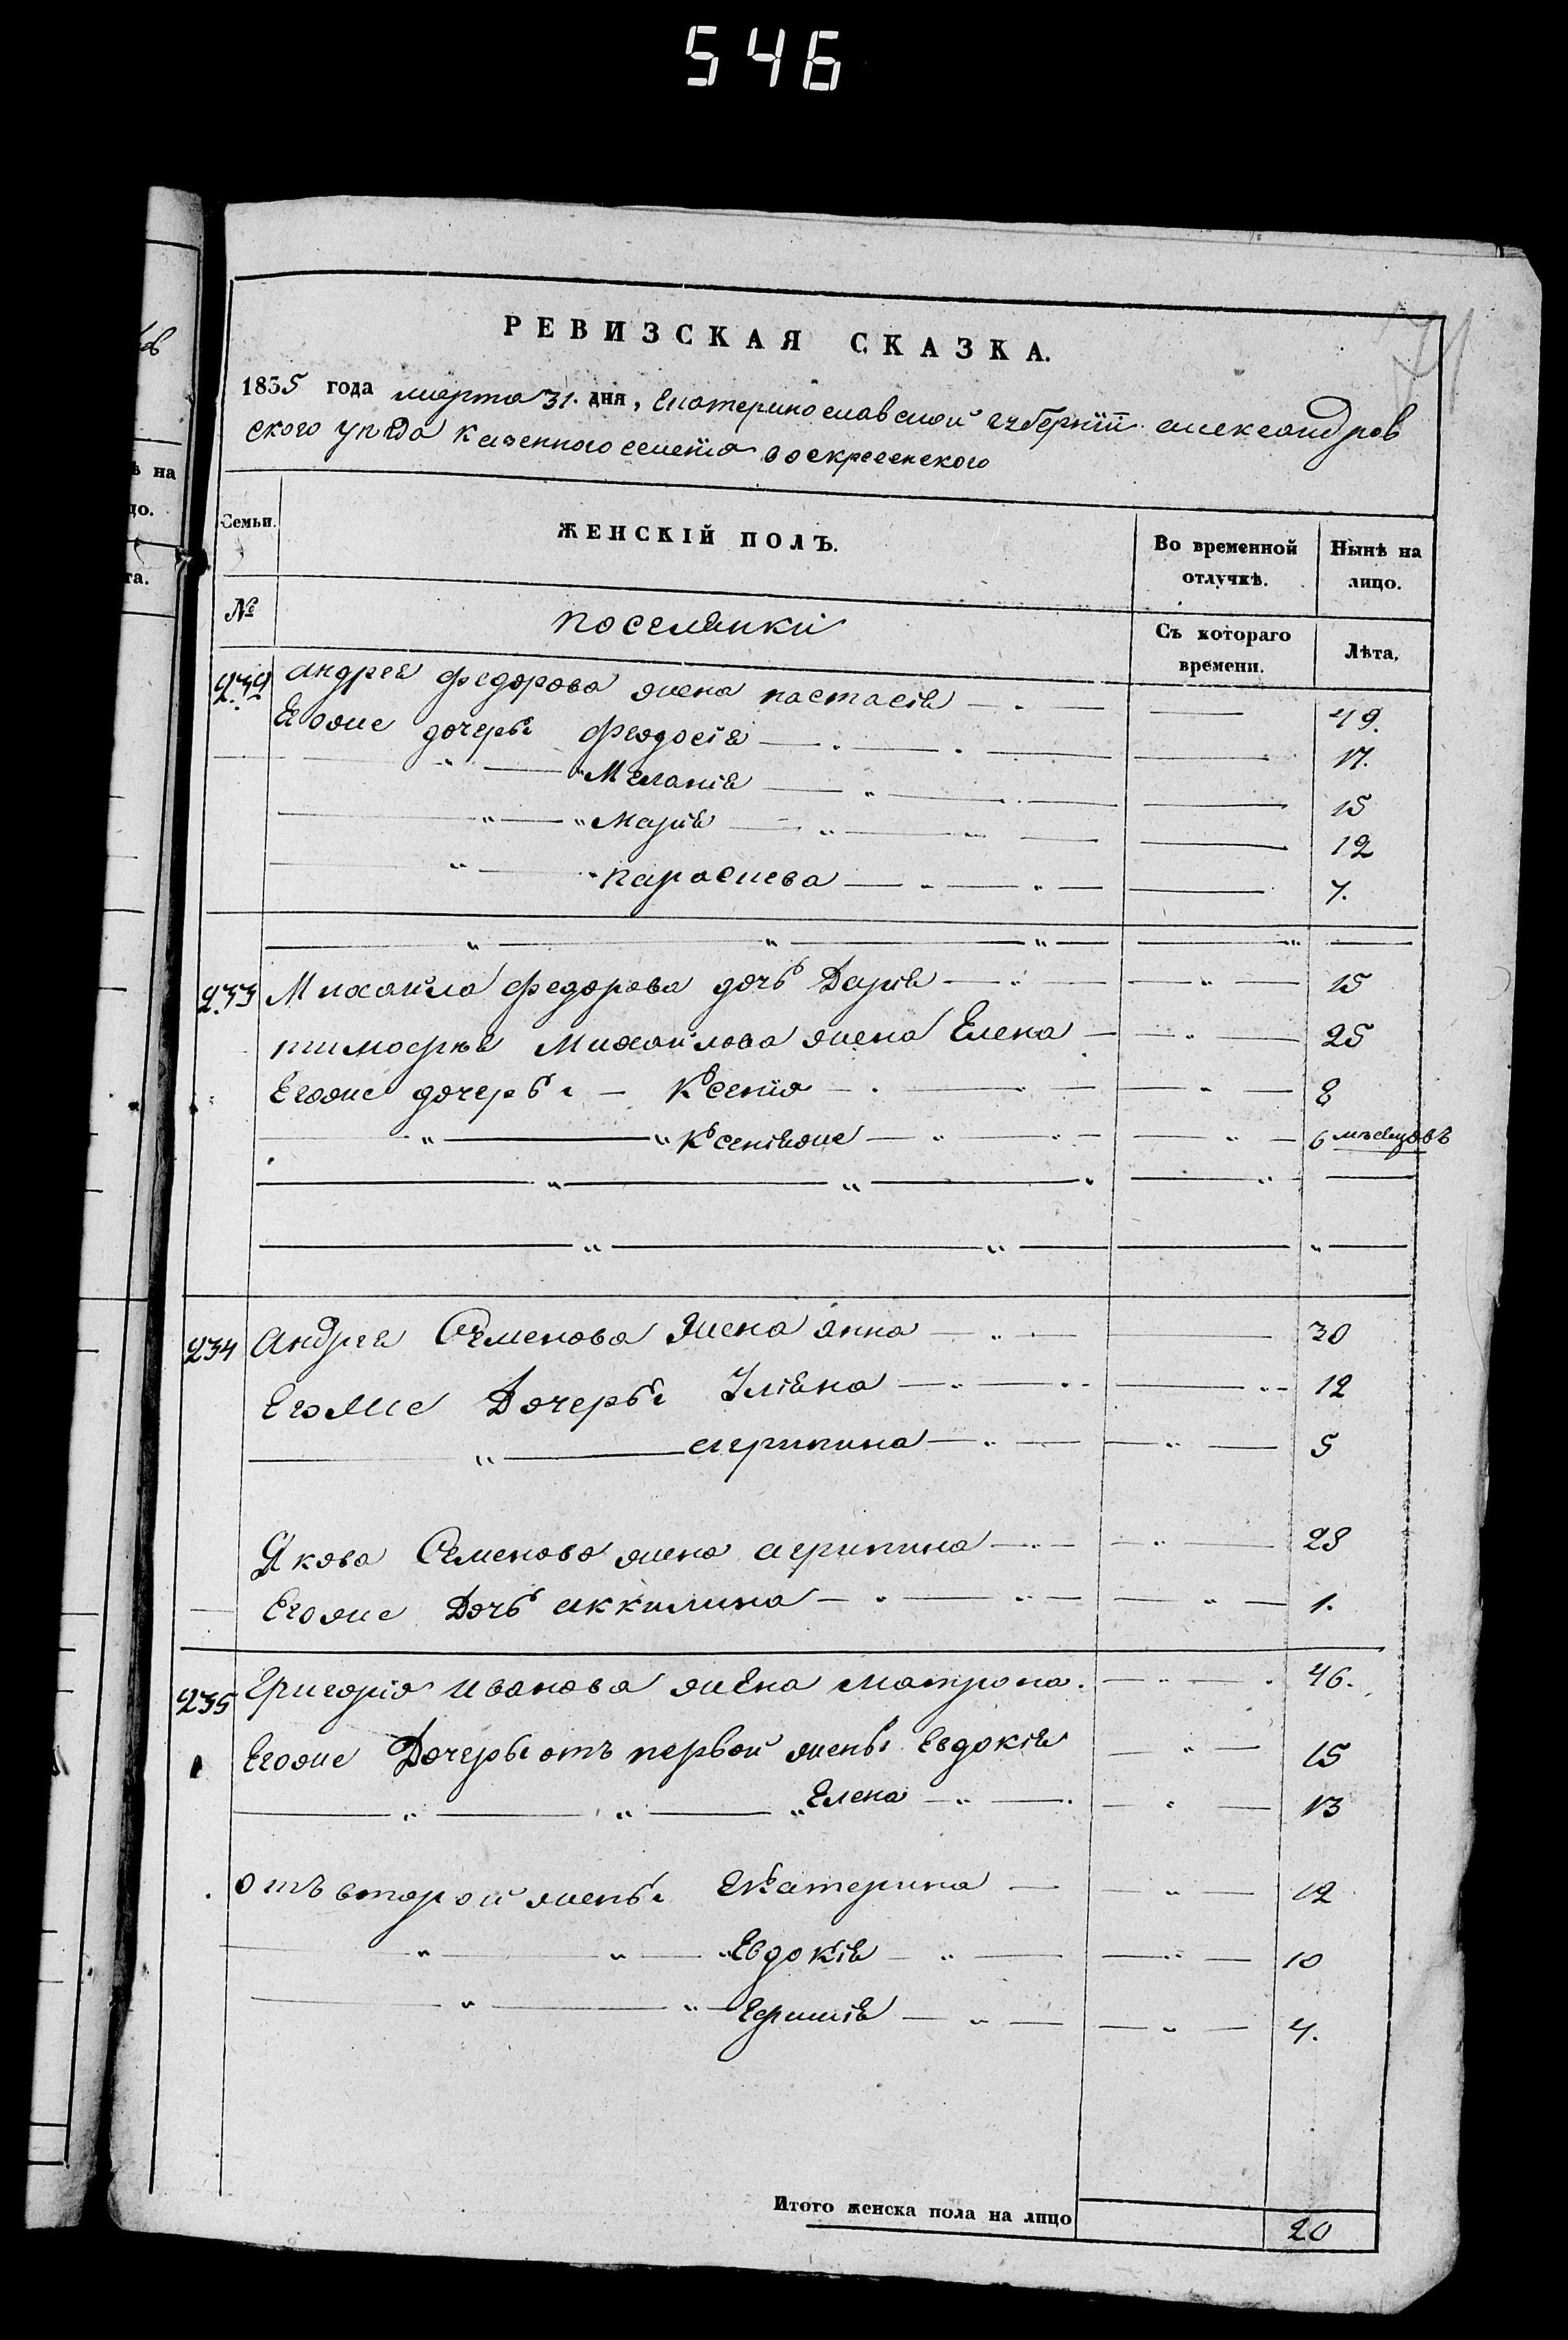 546
71
РЕВИЗСКАЯ СКАЗКА.
1835 года марта 31. дня, Екатеринославской губернїи александров
ского уезда казенного селенїя воскресенского
Семьи. ЖЕНСКІЙ ПОЛЪ. Во временной отлучкѣ. Нынѣ на лицо.
№ поселянки Съ котораго времени. Лѣта.
232 андрея федорова жена настасія 49.
Егоже дочери Феодосія 17.
" " Меланія 15
" " Марія 12
" параскева 7.
233 Михайла федорова дочь Дарія 15
тимофея Михайлова жена Елена 25
Егоже дочери Ксенїя 8
" " Ксеніяже 6 месяцовъ
234 Андрея Семенова жена анна 30
Егоже Дочери Уліяна 12
" агрипина 5
Якова Семенова жена агрипина 28
Егоже Дочь аккилина 1.
235 Григорїя Иванова жена матрона. 46.
Егоже Дочери отъ первой жены Евдокія 15
" " " Елена 13
отъ второй жены Екатерина 12
" " " Евдокія 10
" " Ефимія 4.
Итого женска пола на лицо 20
на
до.
та.